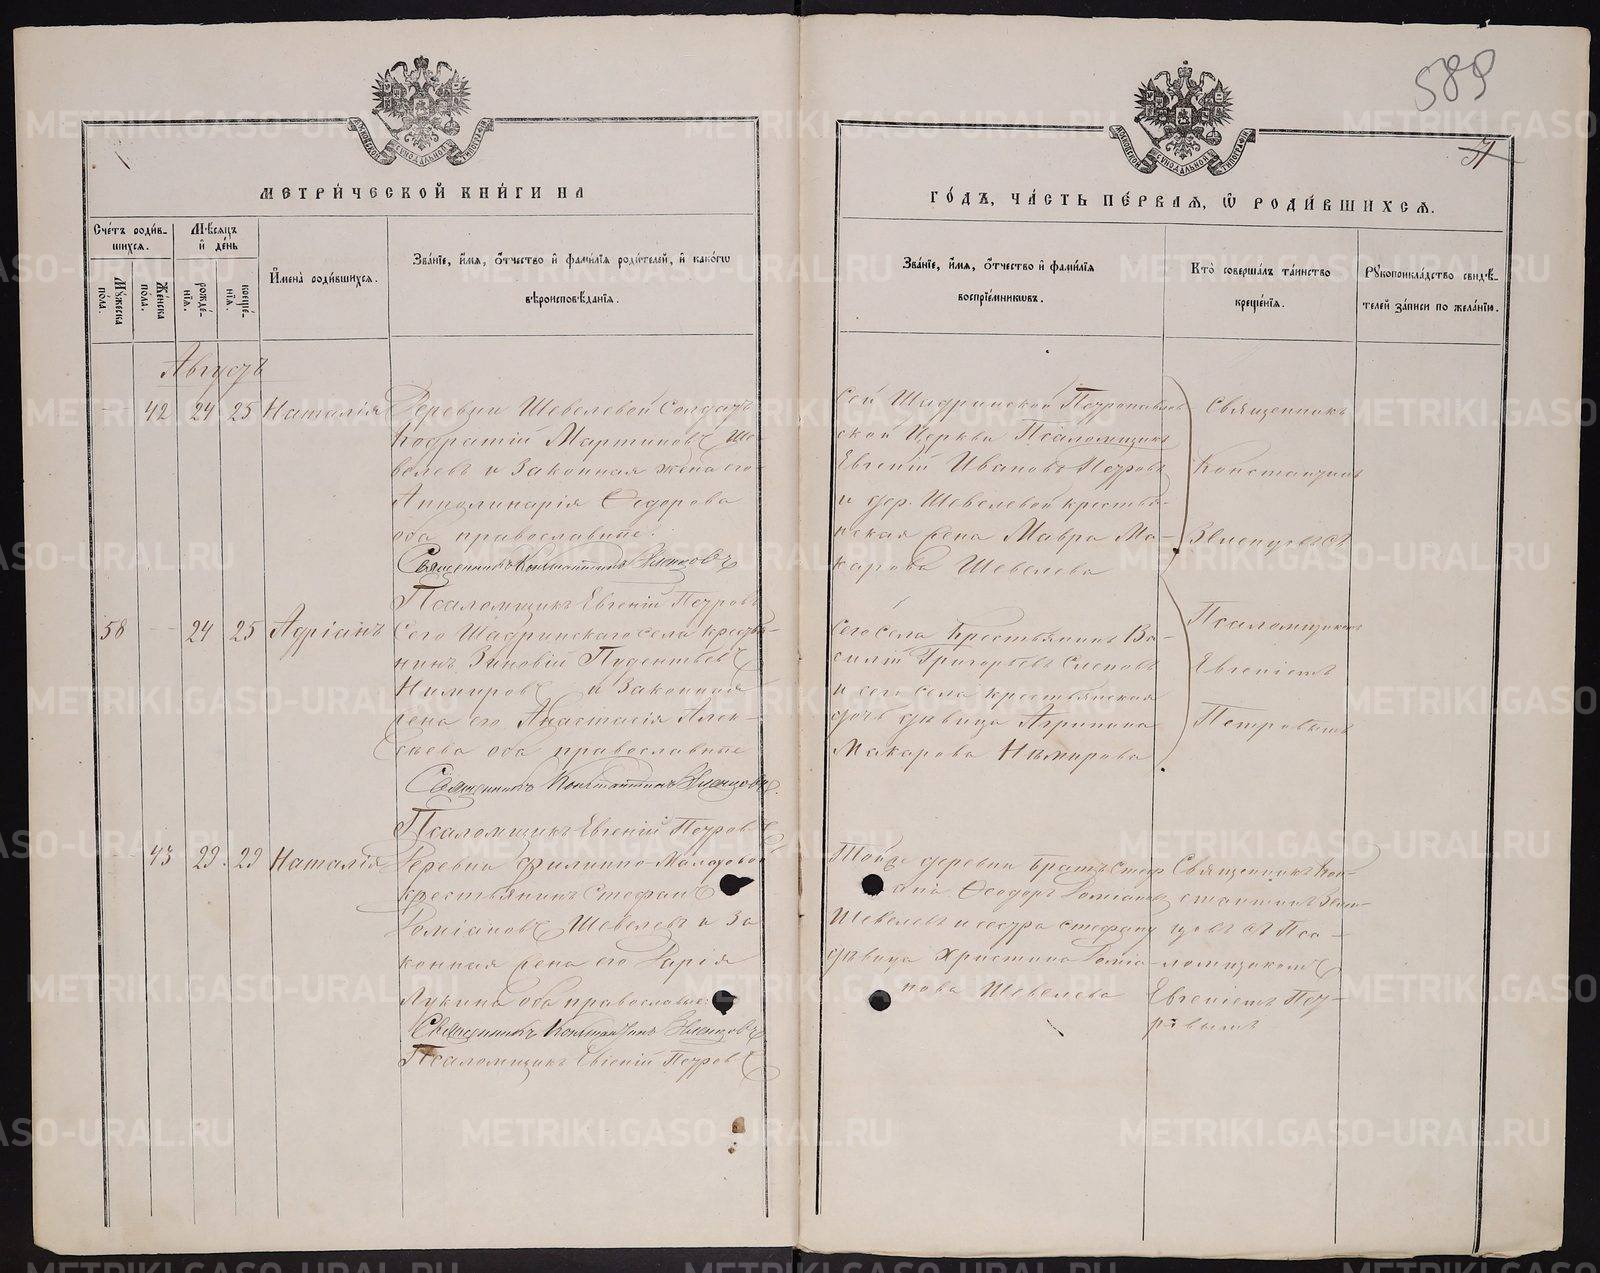 589
МЕТРИ́ЧЕСКОЙ КНИ́ГИ НА
ГО́ДЪ, ЧА́СТЬ ПЕ́РВАЯ, Ѡ РОДИ́ВШИХСЯ.
Сче́тъ роди́в-
шихся.
Му́жеска по́ла.
Же́нска по́ла.
Мѣ́сяцъ и де́нь
рожде́-
нія.
креще́-
нія.
И҆мена̀ роди́вшихся.
Зва́ніе, и҆́мя, ѻ҆́тчество и҆ фами́лія роди́телей, и҆ како́гѡ
вѣроисповѣ́данія.
Зва́ніе, и҆́мя, ѻ҆́тчество и҆ фами́лія
воспріе́мниковъ.
Кто̀ соверша́лъ та́инство
креще́нія.
Рукоприкла́дство свидѣ́-
телей за́писи по жела́нію.
Августъ
42 24 25 Наталія
Деревни Шевелевой Солдатъ
Кодратій Мартиновъ Ше-
велевъ и Законная жена его
Апполинарія Ѳедорова
оба православные.
Священникъ Константинъ
Псаломщикъ Евгеній Петровъ
Сей Шадринской Петропавлов
ской Церкви Псаломщикъ
Евгеній Ивановъ Петровъ
и дер. Шевелевой крестья-
нская жена Мавра Ма-
карова Шевелева
Священникъ
Константинъ
58 24 25 Адріанъ
Сего Шадринскаго села кресть-
нинъ Зиновій Пудентьевъ
Нимировъ и Законная
жена его Анастасія Алек-
сѣева оба православные
Священникъ Константинъ
Псаломщикъ Евгеній Петровъ
Сего села Крестьянинъ Ва-
силій Григорьевъ Слеповъ
и сего села крестьянская
дочь дѣвица Агрипина
Макарова Нимирова
Псаломщикомъ
Евгеніемъ
Петровымъ
43 29 29 Наталія
Деревни Филиппо-Малаховой
крестьянинъ Стефанъ
Даміановъ Шевелевъ и За
конная жена его Дарія
Лукина оба православные
Священникъ Константинъ
Псаломщикъ Евгеній Петровъ
Той же деревни Братъ Стеф
ана Ѳеодоръ Даміановъ
Шевелевъ и сестра Стефана
дѣвица Христина Даміа-
нова Шевелева
Священникъ Кон-
стантинъ
цовъ съ Пса-
ломщикомъ
Евгеніемъ Пет-
ровымъ
METRIKI.GASO-URAL.RU